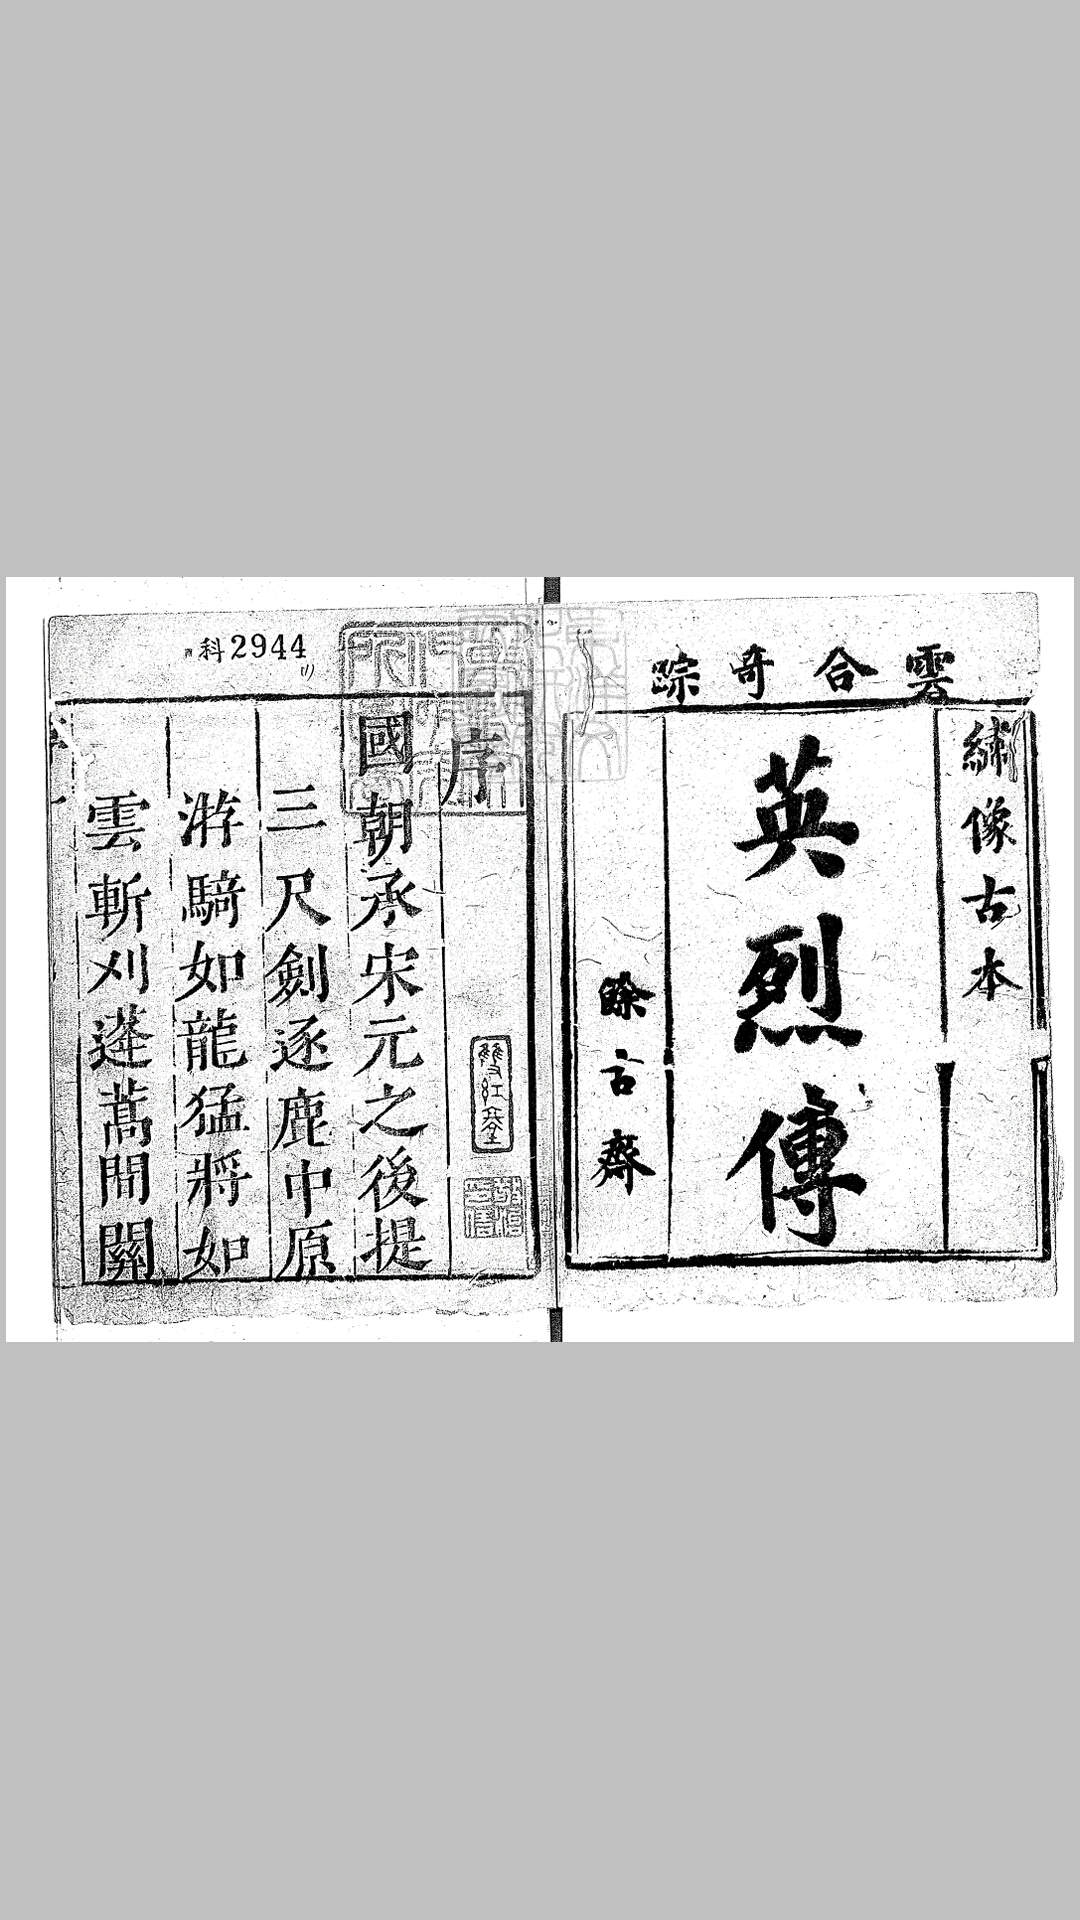 雲合奇踪
繡像古本
英烈傳
餘言齋
科2944
序
國朝承宋元之後提
三尺劍逐鹿中原
游騎如龍猛將如
雲斬刈蓬蒿間關
雙紅堂